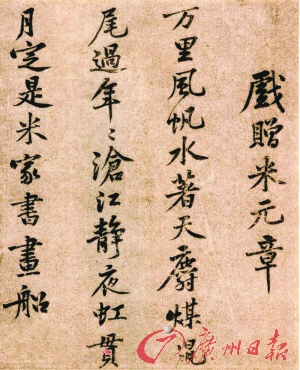 戲贈米元章
万里風帆水著天麝煤鼠
尾過年〻滄江靜夜虹貫
月定是米家書畫船
廣州日報